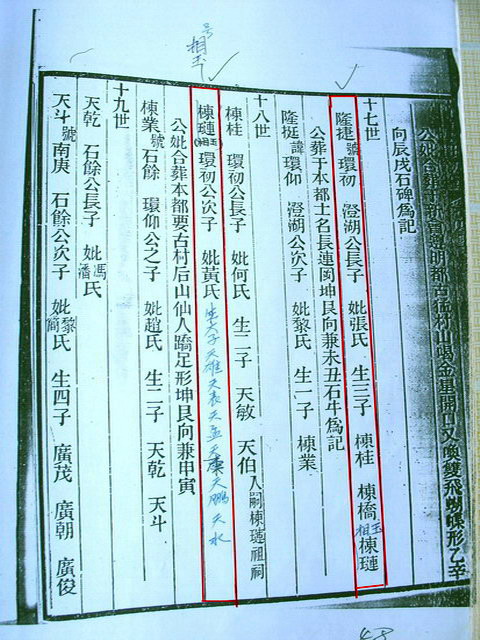 公妣合葬于
明都古猛村山喝金星開口又喚雙飛蝴蝶形乙辛
向辰戌石碑為記
十七世
隆捷 號環初 澄湖公長子 妣張氏 生三子 棟桂 棟橋 棟璉
相玉
公葬于本都土名長連岡坤艮向兼未丑石牛為記
隆挺 諱環仰 澄湖公次子 妣黎氏 生一子 棟業
十八世
棟桂 環初公長子 妣何氏 生二子 天敏 天伯 入嗣棟璉祖祠
号相玉
棟璉(相玉) 環初公次子 妣黃氏 生六子 天雄 天表 天孟 天鵬 天水
公妣合葬本都要古村后山仙人蹻足形坤艮向兼甲寅
棟業 號石餘 環仰公之子 妣趙氏 生二子 天乾 天斗
十九世
天乾 石餘公長子 妣馮潘氏
天斗 號南庚 石餘公次子 妣黎簡氏 生四子 廣茂 廣朝 廣俊
48